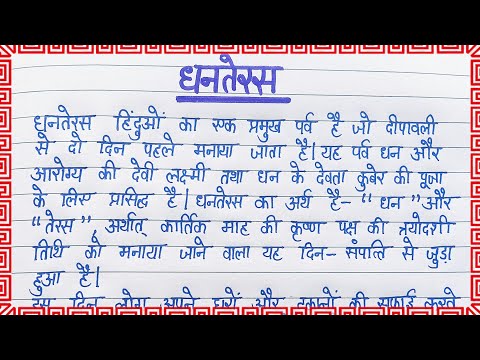 धनतेरस
धनतेरस हिंदुओं का एक प्रमुख पर्व है जो दीपावली
से दो दिन पहले मनाया जाता है। यह पर्व धन और
आरोग्य की देवी लक्ष्मी तथा धन के देवता कुबेर की पूजा
के लिए प्रसिद्ध है। धनतेरस का अर्थ है- "धन" और
"तेरस", अर्थात् कार्तिक माह की कृष्ण पक्ष की त्रयोदशी
तिथि को मनाया जाने वाला यह दिन- संपत्ति से जुड़ा
हुआ है।
इस दिन लोग अपने घरों और दुकानों की सफाई करते